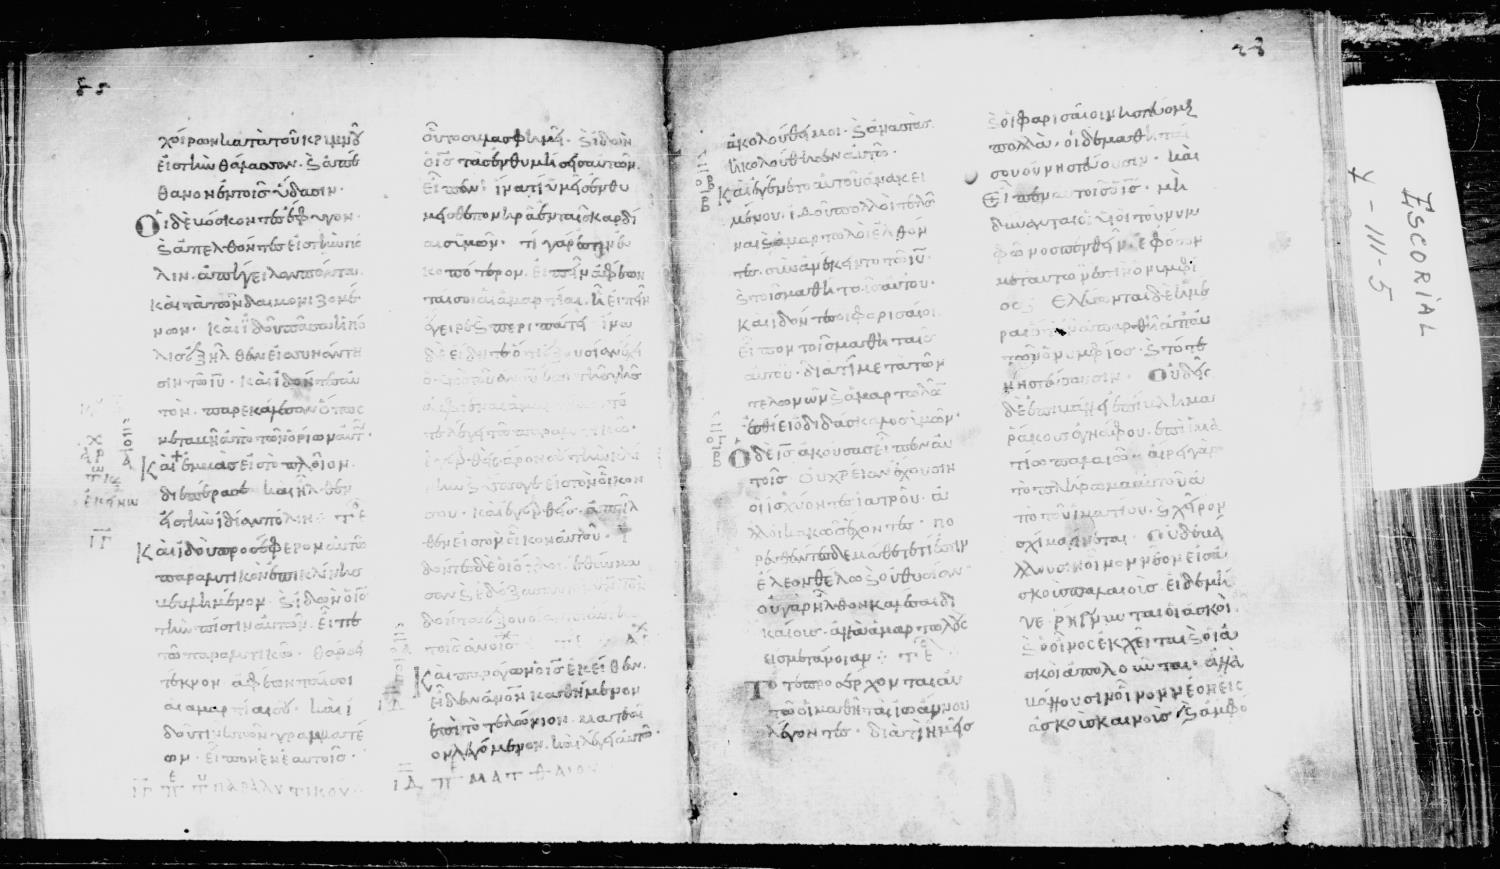 χοίρων κατὰ τοῦ κριμνοῦ
εἰς τὴν θάλασσαν· καὶ ἀπέ
θανον ἐν τοῖς ὕδασιν·
Οἱ δὲ βόσκοντες ἔφυγον·
καὶ ἀπελθόντες εἰς τὴν πό
λιν. ἀπήγγειλαν πάντα.
καὶ τὰ τῶν δαιμονιζομέ
νων· καὶ ἰδοὺ πᾶσα ἡ πό
λις ἐξῆλθεν εἰς συνάντη
σιν τῷ ιυ· καὶ ἰδόντες αὐ
τὸν· παρεκάλεσαν ὅπως
μεταβῇ ἀπὸ τῶν ὁρίων αὐτ·
Καὶ ἐμβὰς εἰς τὸ πλοῖον.
διεπέρασε καὶ ἦλθεν
εἰς τὴν ἰδίαν πόλιν
Καὶ ἰδοὺ προσέφερον αὐτῷ
παραλυτικὸν ἐπὶ κλίνης
βεβλημένον. καὶ ἰδὼν ὁ ις
τὴν πίστιν αὐτῶν. εἶπε
τῷ παραλυτικῷ· θάρσει
τέκνον ἀφέωνταί σοι
αἱ ἁμαρτίαι σου· καὶ ἰ
δού τινες τῶν γραμματέ
ων. εἶπον ἐν ἑαυτοῖς·
ΙΓ ΠΕ Τ ΠΑΡΑΛΥΤΙΚΟΥ
οὗτος βλασφημεῖ. καὶ ἰδὼν
ὁ ις τὰς ἐνθυμήσεις αὐτῶν.
εἶπεν ἱνατί ὑμεῖς ἐνθυ
μεῖσθε πονηρὰ ἐν ταῖς καρδί
αις ὑμῶν· τί γάρ ἐστιν εὐ
κοπώτερον. εἰπεῖν ἀφέων
ταί σοι αἱ ἁμαρτίαι. ἢ εἰπεῖν
ἔγειρε καὶ περιπάτει ἵνα
δὲ εἰδῆτε ὅτι ἐξουσίαν ἔχει
τότε λέγει τῷ παραλυτικῷ.
σου· καὶ ἐγερθεὶς. ἀπῆλ
θεν εἰς τὸν οἶκον αὐτοῦ·
τοῖς ἀνοις
Καὶ παράγων ὁ ις ἐκεῖθεν.
εἶδεν ανον καθήμενον
ἐπὶ τὸ τελώνιον. ματθαῖ
ον λεγόμενον. καὶ λέγει αὐτῷ·
ΙΔ Π ΜΑΤΘΑΙΟΥ
ἀκολούθει μοι· καὶ ἀναστὰς
ἠκολούθησεν αὐτῷ·
Καὶ ἐγένετο αὐτοῦ ἀνακει
μένου. ἰδοὺ πολλοὶ τελῶ
ναι καὶ ἁμαρτωλοὶ ἐλθόν
τες. συνανέκειντο τῷ ιυ·
καὶ τοῖς μαθηταῖς αὐτοῦ·
καὶ ἰδόντες οἱ φαρισαῖοι
εἶπον τοῖς μαθηταῖς
αὐτοῦ· διατί μετὰ τῶν
τελωνῶν καὶ ἁμαρτωλῶν
ἐσθίει ὁ διδάσκαλος ὑμῶν·
Ὁ δὲ ις ἀκούσας εἶπεν αὐ
τοῖς οὐ χρείαν ἔχουσιν
οἱ ἰσχύοντες ἰατροῦ. ἀ
λλοἱ κακῶς ἔχοντες· πο
ρευθέντες δὲ μάθετε τί ἐστιν
ἔλεον θέλω καὶ οὐ θυσίαν·
οὐ γὰρ ἦλθον καλέσαι δι
καίους. ἀλλὰ ἁμαρτωλοὺς
εἰς μετάνοιαν
Τότε προσέρχονται αὐ
τῷ οἱ μαθηταὶ ἰωάννου
λέγοντες· διατί ἡμεῖς
καὶ οἱ φαρισαῖοι νηστεύομεν
πολλὰ· οἱ δὲ μαθηταί
σου οὐ νηστεύουσιν· καὶ
εἶπεν αὐτοῖς ὁ ις· μὴ
δύνανται οἱ υἱοὶ τοῦ νυμ
φῶνος πενθεῖν. ἐφόσον
μεταυτῶν ἐστιν ὁ νυμφί
ος Ἐλεύσονται δὲ ἡμέ
ραι ὅταν ἀπαρθῇ ἀπαὐ
τῶν ὁ νυμφίος· καὶ τότε
νηστεύσουσιν· Οὐδεὶς
δὲ ἐπιβάλλει ἐπίβλημα
ῥάκους ἀγνάφου. ἐπὶ ἱμα
τίῳ παλαιῷ αἴρει γὰρ
τὸ πλήρωμα αὐτοῦ ἀ
πὸ τοῦ ἱματίου. καὶ χεῖρον
σχίσμα γίνεται· Οὐδὲ βά
λλουσιν οἶνον νέον εἰς ἀ
σκοὺς παλαιοὺς εἰ δὲ μή
γε ῥήγνυνται οἱ ἀσκοὶ.
καὶ ὁ οἶνος ἐκχεῖται καὶ οἱ ἀ
σκοὶ ἀπολοῦνται· ἀλλὰ
βάλλουσιν οἶνον νέον εἰς
ἀσκοὺς καινοὺς καὶ ἀμφό
ESCORIAL
Y-III-5